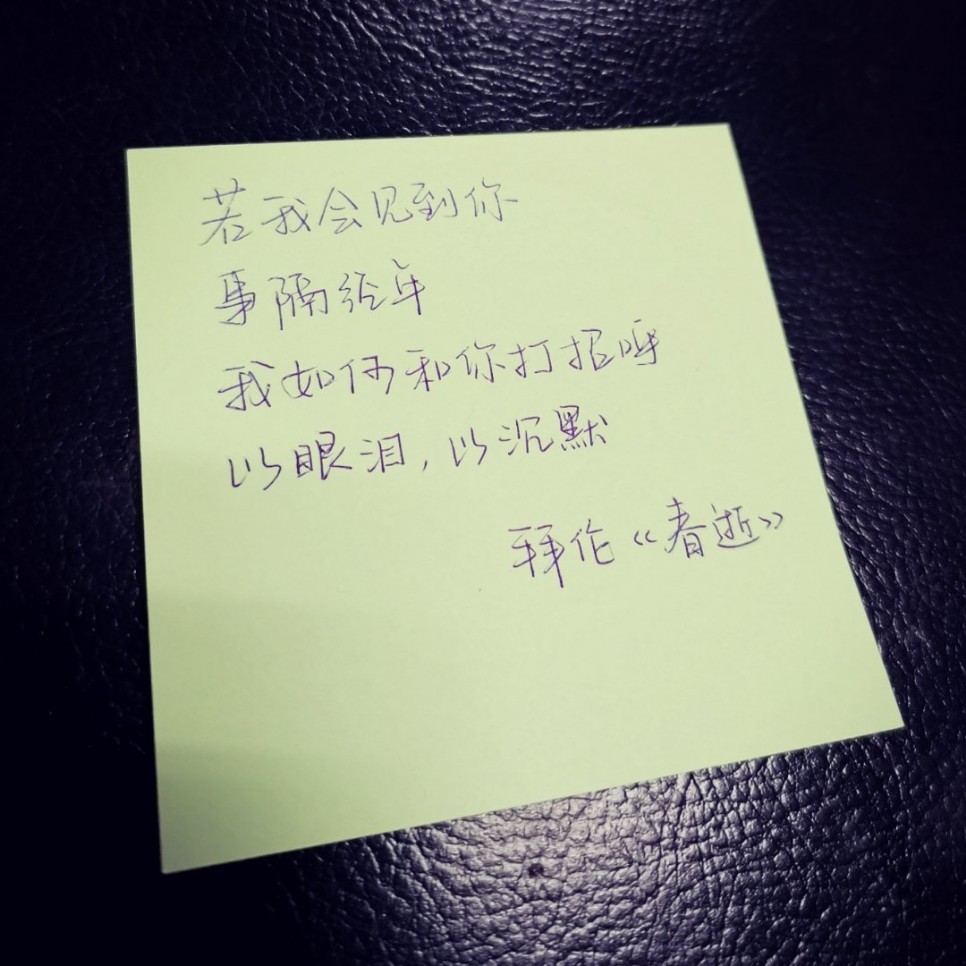 若我会见到你
事隔经年
我如何和你打招呼
以眼泪，以沉默
拜伦《春逝》